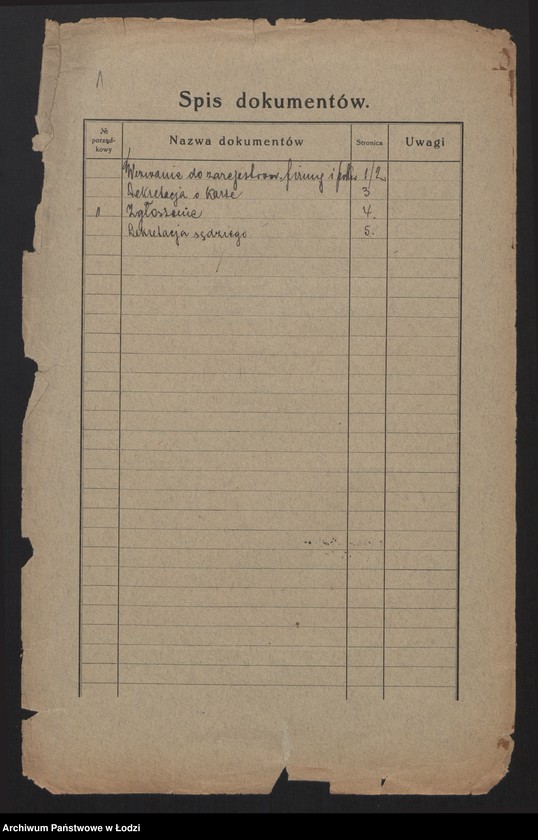 Spis dokumentów.
№ porząd-kowy Nazwa dokumentów Stronica Uwagi
Wezwanie do zarejestrow. firmy i 1/2
Dekretacja o karze 3
Zgłoszenie 4.
Dekretacja sędziego 5.
Archiwum Państwowe w Łodzi